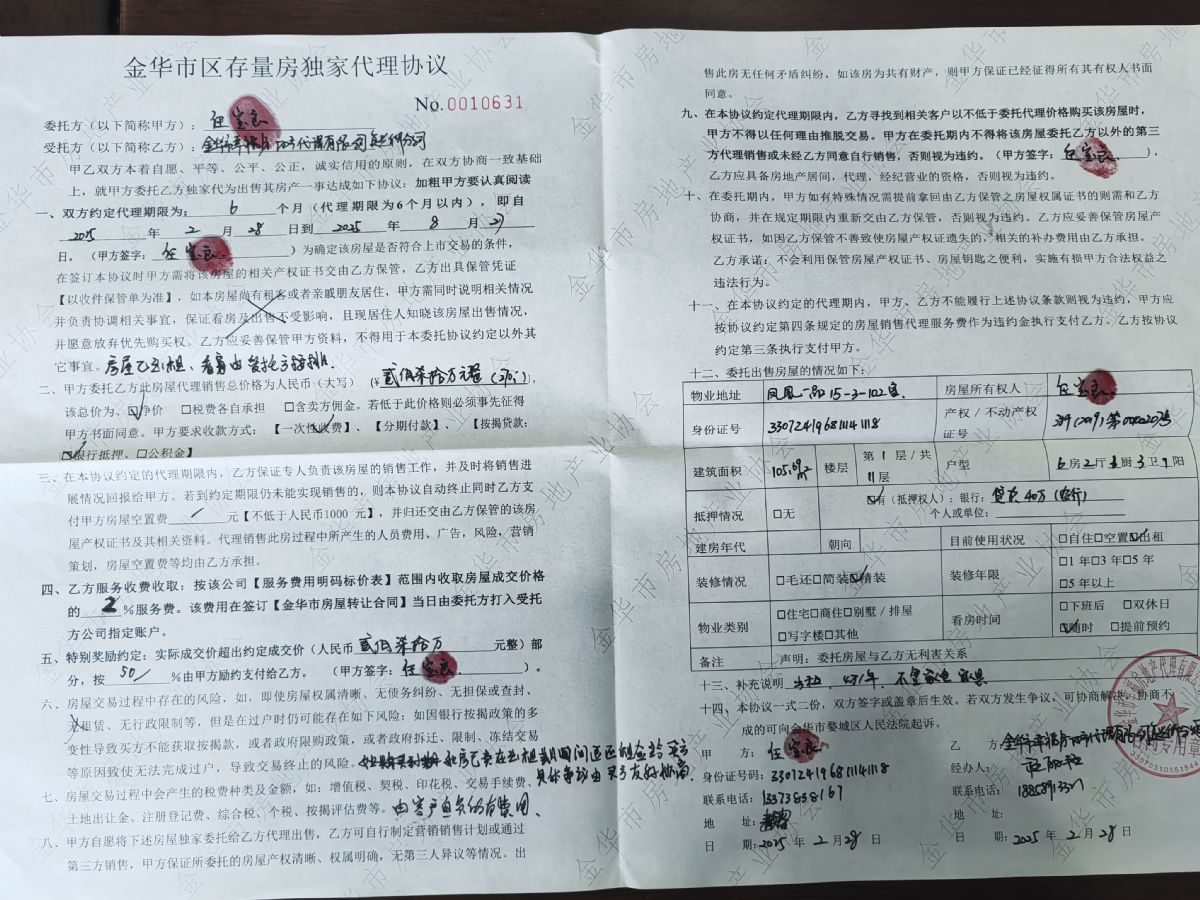 金华市区存量房独家代理协议
No.0010631
委托方（以下简称甲方）：任宝良
受托方（以下简称乙方）：金华市
甲乙双方本着自愿、平等、公平、公正，诚实信用的原则，在双方协商一致基础
上，就甲方委托乙方独家代为出售其房产一事达成如下协议：加粗甲方要认真阅读
一、双方约定代理期限为：6个月（代理期限为6个月以内），即自
2025年2月28日到2025年8月27
日。（甲方签字：任宝良）为确定该房屋是否符合上市交易的条件，
在签订本协议时甲方需将该房屋的相关产权证书交由乙方保管，乙方出具保管凭证
【以收件保管单为准】，如本房屋尚有租客或者亲戚朋友居住，甲方需同时说明相关情况
并负责协调相关事宜，保证看房及出售不受影响，且现居住人知晓该房屋出售情况，
并愿意放弃优先购买权。乙方应妥善保管甲方资料，不得用于本委托协议约定以外其
它事宜。房屋已出租、看房由委托方安排.
二、甲方委托乙方此房屋代理销售总价格为人民币（大写）（¥贰佰柒拾万元整（270万）），
该总价为、☑净价 □税费各自承担 □含卖方佣金。若低于此价格则必须事先征得
甲方书面同意。甲方要求收款方式：【一次性收费】、【分期付款】、【按揭贷款：
☑银行抵押、□公积金】
三、在本协议约定的代理期限内，乙方保证专人负责该房屋的销售工作，并及时将销售进
展情况回报给甲方。若到约定期限仍未能实现销售的，则本协议自动终止同时乙方支
付甲方房屋空置费/元【不低于人民币1000 元】，并归还交由乙方保管的该房
屋产权证书及其相关资料。代理销售此房过程中所产生的人员费用、广告，风险，营销
策划，房屋空置费等均由乙方承担。
四、乙方服务收费收取：按该公司【服务费用明码标价表】范围内收取房屋成交价格
的2%服务费。该费用在签订【金华市房屋转让合同】当日由委托方打入受托
方公司指定账户。
五、特别奖励约定：实际成交价超出约定成交价（人民币贰佰柒拾万元整）部
分，按50%由甲方励约支付给乙方。（甲方签字：任宝良）。
六、房屋交易过程中存在的风险，如，即使房屋权属清晰、无债务纠纷、无担保或查封、
无租赁、无行政限制等，但是在过户时仍可能存在如下风险：如因银行按揭政策的多
变性导致买方不能获取按揭款，或者政府限购政策，或者政府拆迁、限制、冻结交易
等原因致使无法完成过户，导致交易终止的风险。
七、房屋交易过程中会产生的税费种类及金额，如：增值税、契税、印花税、交易手续费、
土地出让金、注册登记费、综合税、个税、按揭评估费等。由客户负责所有费用、
八、甲方自愿将下述房屋独家委托给乙方代理出售，乙方可自行制定营销销售计划或通过
第三方销售，甲方保证所委托的房屋产权清晰、权属明确，无第三人异议等情况。出
售此房无任何矛盾纠纷，如该房为共有财产，则甲方保证已经征得所有其有权人书面
同意。
九、在本协议约定代理期限内，乙方寻找到相关客户以不低于委托代理价格购买该房屋时，
甲方不得以任何理由推脱交易。甲方在委托期内不得将该房屋委托乙方以外的第三
方代理销售或未经乙方同意自行销售，否则视为违约。（甲方签字：任宝良），
乙方应具备房地产居间，代理、经纪营业的资格，否则视为违约。
十、在委托期内，甲方如有特殊情况需提前拿回由乙方保管之房屋权属证书的则需和乙方
协商，并在规定期限内重新交由乙方保管，否则视为违约。乙方应妥善保管房屋产
权证书，如因乙方保管不善致使房屋产权证遗失的，相关的补办费用由乙方承担。
乙方承诺：不会利用保管房屋产权证书、房屋钥匙之便利，实施有损甲方合法权益之
违法行为。
十一、在本协议约定的代理期内，甲方、乙方不能履行上述协议条款则视为违约，甲方应
按协议约定第四条规定的房屋销售代理服务费作为违约金执行支付乙方。乙方按协议
约定第三条执行支付甲方。
十二、委托出售房屋的情况如下：
物业地址 凤凰一品15-3-102室. 房屋所有权人 任宝良
身份证号 330724196811141118 产权／不动产权证号
建筑面积 105.69㎡ 楼层 第1层／共11层 户型
抵押情况 □无 ☑有（抵押权人）：银行：贷款40万（农行）
个人或单位：
建房年代 朝向 目前使用状况 □自住□空置☑出租
装修情况 □毛还□简装☑精装 装修年限 □1年□3年□5年
□5年以上
物业类别 □住宅□商住□别墅／排屋
□写字楼□其他
看房时间 □下班后 □双休日
☑随时 □提前预约
备注 声明：委托房屋与乙方无利害关系
十三、补充说明
十四、本协议一式二份，双方签字或盖章后生效。若双方发生争议，可协商解决，协商不
成的可向金华市婺城区人民法院起诉。
甲 方：任宝良
乙 方：
身份证号码：330724196811141118
经办人：
联系电话：13373858167
联系电话：
地 址：
地 址：
日 期：2025年2月28日
日 期：2025年2月28日